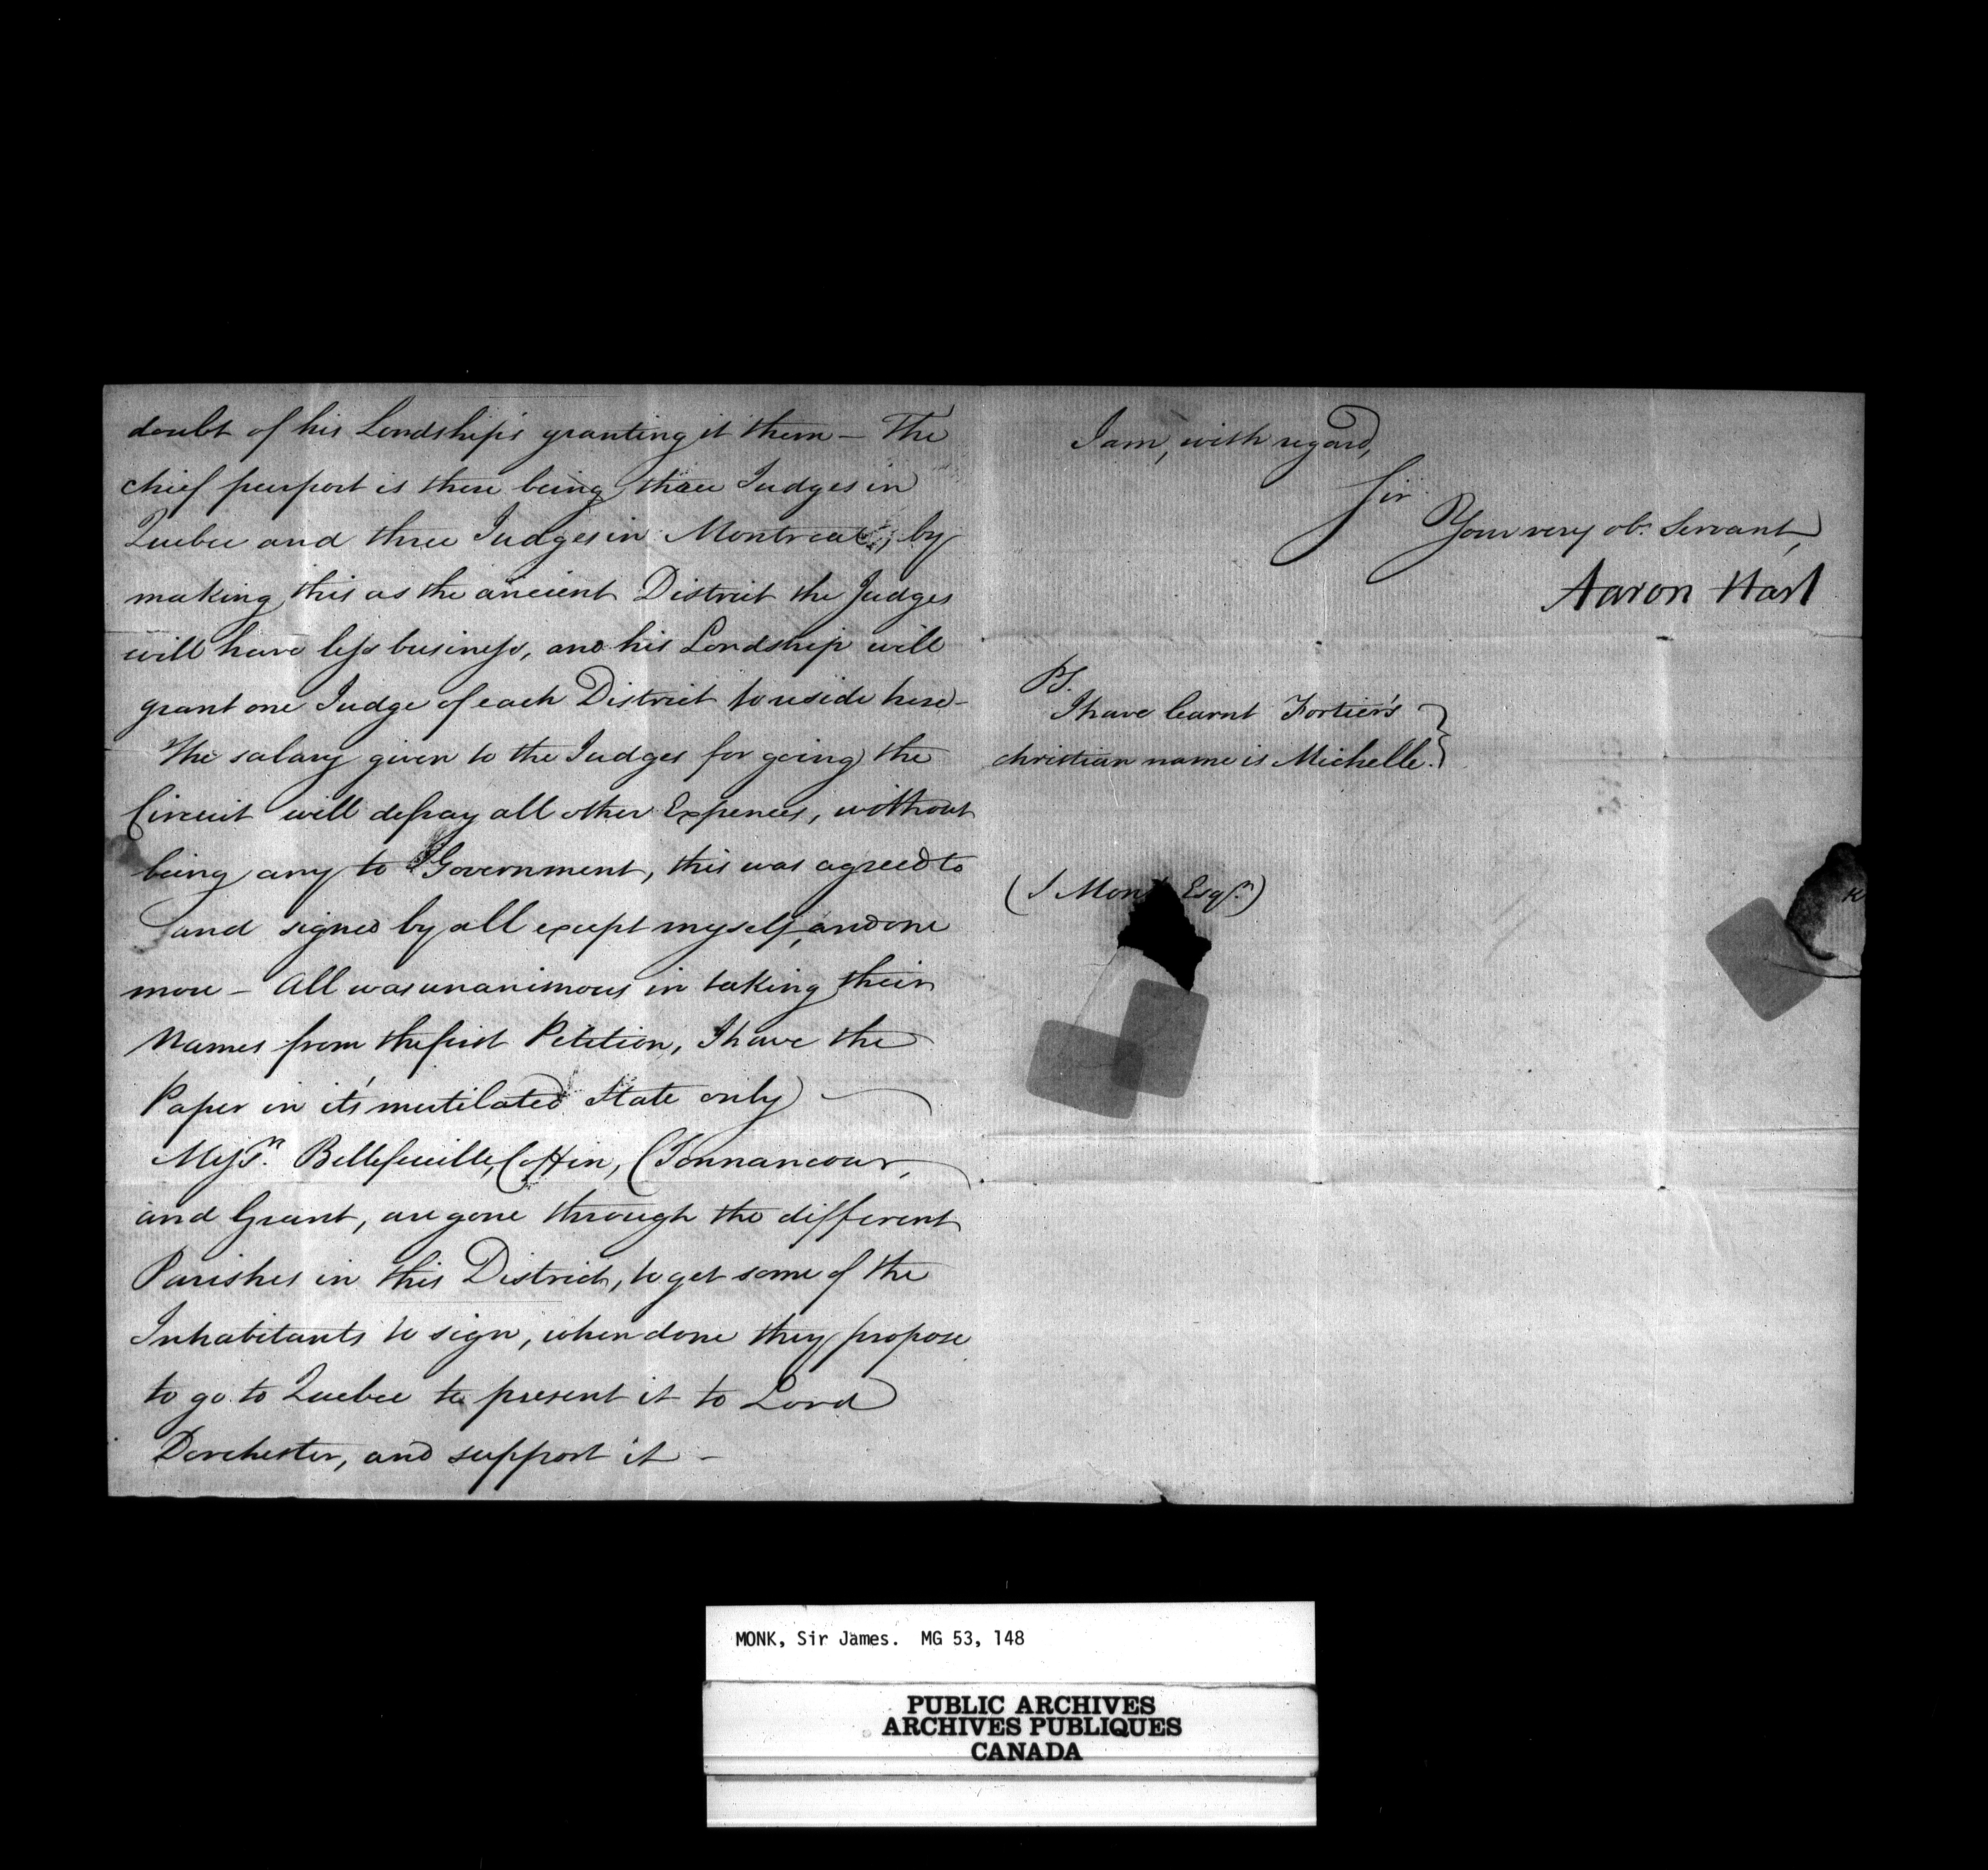 doubt of his Lordship's granting it them — The
chief purport is there being three Judges in
Quebec and three Judges in Montreal, by
making this as the ancient District the Judges
will have less business, and his Lordship will
grant one Judge of each District to reside here —
The salary given to the Judges for going the
Circuit will defray all other Expences, without
being any to Government, this was agreed to
and signed by all except myself, and one
more — All was unanimous in taking their
Names from the first Petition, I have the
Paper in it's mutilated State only —
Messrs. Bellefeuille, Coffin, Tonnancour,
and Grant, are gone through the different
Parishes in this District, to get some of the
Inhabitants to sign, when done they propose
to go to Quebec to present it to Lord
Dorchester, and support it —
I am, with regard,
Sir
Your very ob. Servant,
Aaron Hart
PS.
I have learnt Fortier's
christian name is Michelle.
(J Monk Esqr.)
MONK, Sir James. MG 53, 148
PUBLIC ARCHIVES
ARCHIVES PUBLIQUES
CANADA